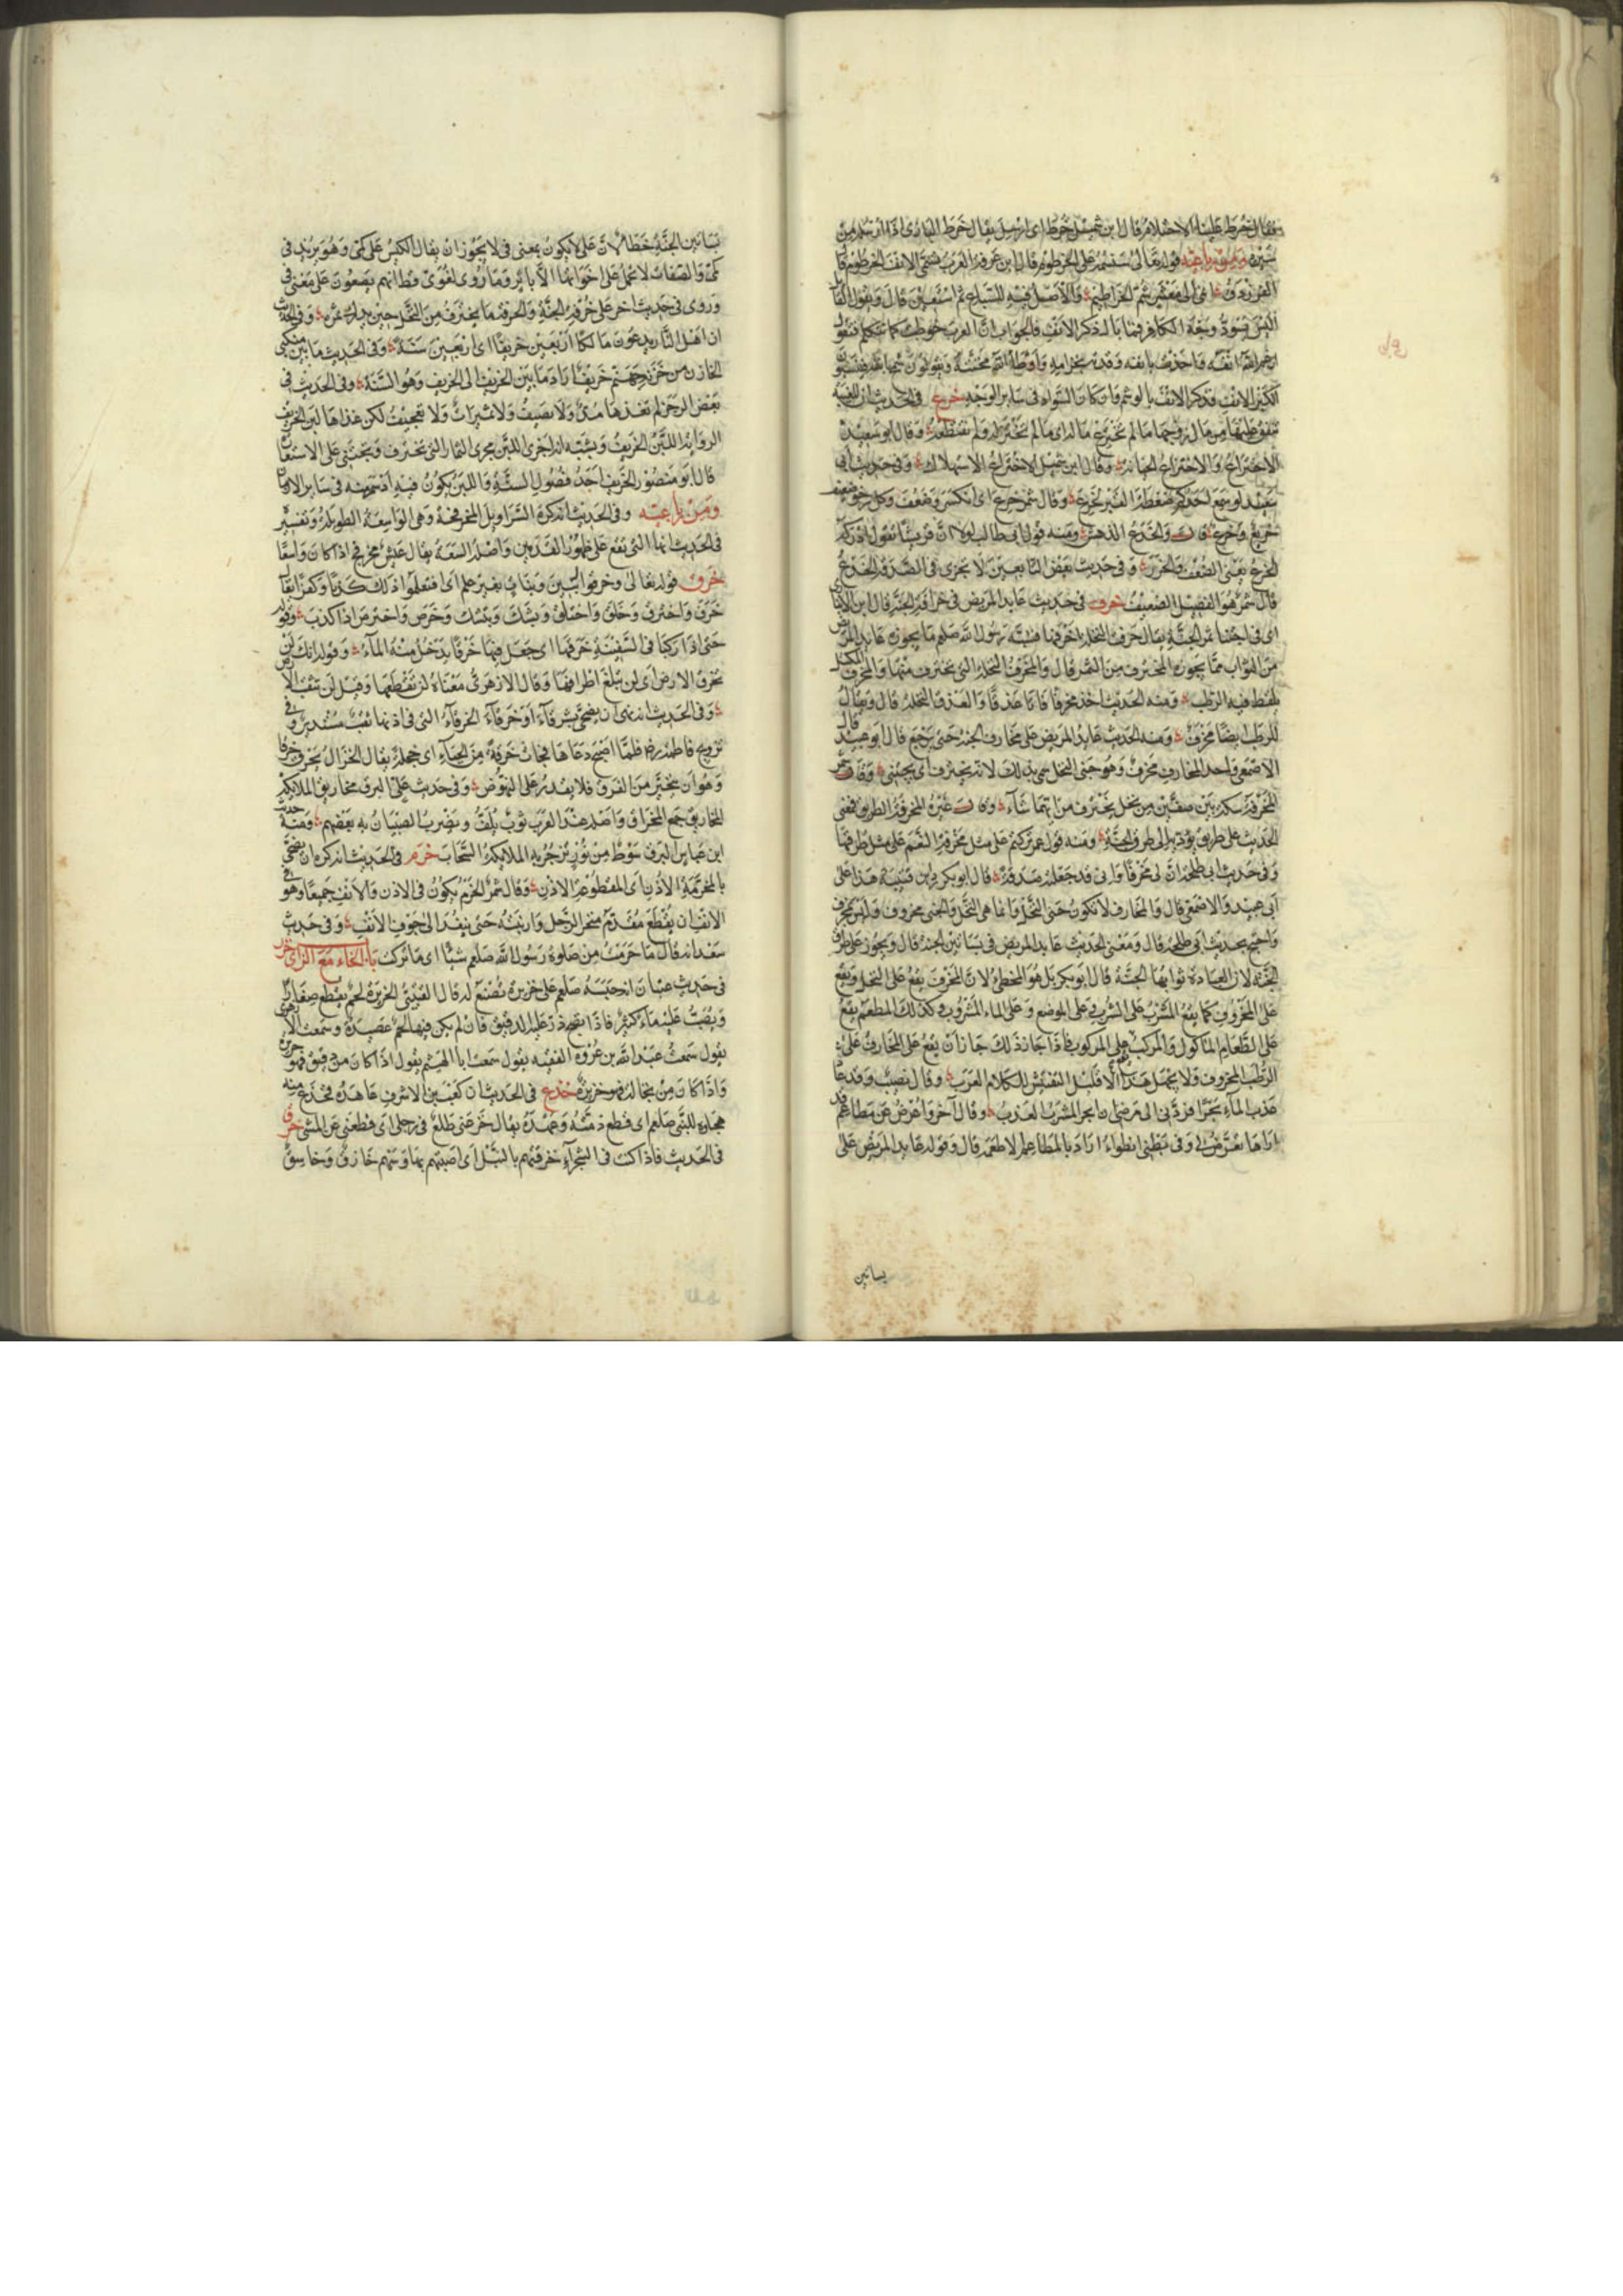 فقال خرط علينا الاحتلام قال ابن شميل خرط اى ارسل يقال خرط البازى اذا ارسله من
سيره ومن رباعيه قوله تعالى سنسمه على الخرطوم قال ابن عرفة العرب تسمى الانف الخرطوم قال
الفرزدق شم الخراطيم والاصل فيه للسباع ثم استعير قال ويقول القائل
اليس تسود وجه الكافر فما باله ذكر الانف فالجواب ان العرب خوطبت كما تتكلم فتقول
ارغم الله انفه واخذت بانفه
الكبر الى الانف فذكر الانف بالوشم وان كان السواد فى ساير الوجه خرع فى الحديث ان المغيبة
ينفق عليها من مال زوجها ما لم تخترع ماله اى ما لم تختزله ولم تقتطعه وقال ابو سعيد
الاختراع والاختزاع الخيانة وقال ابن شميل الاختراع الاستهلاك وفى حديث ابى
سعيد لو سمع احدكم ضغطة القبر لخرع وقال شمر خرع اى انكسر وضعف وكل رخو ضعيف
خريع وخرع قال والخرع الدهش ومنه قول ابى طالب لولا ان قريشا تقول ادركه
الخرع يعنى الضعف والخور وفى حديث بعض التابعين لا يجزى فى الصدقة الخرع
قال شمر هو الفصيل الضعيف خرف فى حديث عايد المريض فى خرافة الجنة قال ابن الانبارى
اى فى اجتنا ثمر الجنة يقال خرفت النخلة اخرفها فشبه رسول الله صلعم ما يحوزه عايد المريض
من الثواب بما يحوزه المخترف من الثمر قال والمخرف النخلة التى يخترف منها والمخرف المكتل
يلقط فيه الرطب ومنه الحديث اخذ مخرفا فاتا عذقا والعذق النخلة قال ويقال
للرطب ايضا مخرف ومنه الحديث عايد المريض على مخارف الجنة حتى يرجع قال ابو عبيد قال
الاصمعى واحد المخارف مخرف وهو جنى النخل سمى بذلك لانه يخترف اى يجتنى وقال شمر
المخرفة سكة بين صفين من نخل يخترف من ايهما شاء وقال غيره المخرفة الطريق فمعنى
الحديث على طريق يوديه الى طرق الجنة ومنه قول عمر تركتم على مثل مخرفة النعم على مثل طرقها
وفى حديث ابى طلحة ان لى مخرفا وانى قد جعلته صدقة قال ابو بكر رد ابن قتيبة هذا على
ابى عبيد والاصمعى قال والمخارف لا تكون جنى النخل وانما هى النخل والجنى مخروف ولم يخرف
واحتج بحديث ابى طلحة قال ومعنى الحديث عايد المريض فى بساتين الجنة قال ويجوز على طرق
الجنة لان العيادة ثوابها الجنة قال ابو بكر بل هو المخطى لان المخرف يقع على النخل ويقع
على المخروف كما يقع المشرب على الشرب وعلى الموضع وعلى الماء المشروب وكذلك المطعم يقع
على الطعام الماكول والمركب على المركوب فاذا جاز ذلك جاز ان يقع على المخارف على
الرطب المخروف ولا يجهل هذا الا قليل التفتيش لكلام العرب وقال نصيب وقد عاد
عذب الماء بحرا فزادنى الى مرضى ان ابحر المشرب العذب وقال آخر واعرض عن مطاعم قد
اراها تعرض لى وفى بطنى انطواء اراد بالمطاعم الاطعمة قال وقوله عايد المريض على
بساتين
بساتين الجنة خطا لان على لا يكون بمعنى فى لا يجوز ان يقال الكيس على كمى وهو يريد فى
كمى والصفات لا تحمل على اخواتها الا باثر وما روى لغوى قط انهم يضعون على معنى فى
وروى فى حديث اخر على خرفة الجنة والخرفة ما يخترف من النخل حين يدرك ثمره وفى الحديث
ان اهل النار يدعون مالكا اربعين خريفا اى اربعين سنة وفى الحديث ما بين منكبى
الخازن من خزنة جهنم خريف اراد ما بين الخريف الى الخريف وهو السنة وفى الحديث فى
بعض الرجز لم تغذها مد ولا نصيف ولا تميرات ولا تعجيف لكن غذاها لبن الخريف
الرواية اللبن الخريف ويشبه انه اجرى اللبن مجرى الثمار التى تخترف وتجتنى على الاستعارة
قال ابو منصور الخريف احد فصول السنة واللبن يكون فيه ادسم منه فى ساير الازمان
ومن رباعيه وفى الحديث انه كره السراويل المخرفجة وهى الواسعة الطويلة وتفسير
فى الحديث انها التى تقع على ظهور القدمين واصله السعة يقال عيش مخرفج اذا كان واسعا
خرق قوله تعالى وخرقوا له بنين وبنات بغير علم اى افتعلوا ذلك كذبا وكفرا يقال
خرق واخترق وخلق واختلق وبشك وابتشك وخرص واخترص اذا كذب وقوله
حتى اذا ركبا فى السفينة خرقها اى جعل فيها خرقا يدخل منه الماء وقوله انك لن
تخرق الارض اى لن تبلغ اطرافها وقال الازهرى معناه لن تقطعها وقيل لن تثقب الارض
وفى الحديث انه نهى ان يضحى بشرقاء او خرقاء الخرقاء التى فى اذنها ثقب مستدير وفى
تزويج فاطمة رضه فلما اصبح دعاها فجات خرقة من الحياء اى خجلة يقال الغزال يخرق خرقا
وهو ان يتحير من الفرق فلا يقدر على النهوض وفى حديث على البرق مخاريق الملايكة
المخاريق جمع المخراق واصله عند العرب ثوب يلف ويضرب الصبيان به بعضهم ومنه حديث
ابن عباس البرق سوط من نور تزجر به الملايكة السحاب خرم فى الحديث انه كره ان يضحى
بالمخرمة الاذن اى المقطوعة الاذن وقال شمر الخرم يكون فى الاذن والانف جميعا وهو فى
الانف ان يقطع مقدم منخر الرجل وارنبته حتى ينفد الى جوف الانف وفى حديث
سعد انه قال ما خرمت من صلوة رسول الله صلعم شيئا اى ما تركت باب الخاء مع الزاى خزر
فى حديث عتبان انه حبسه صلعم على خزيرة تصنع له قال القتيبى الخزيرة لحم يقطع صغارا
ويصب عليه ماء كثير فاذا نضج ذر عليه الدقيق فان لم يكن فيها لحم عصيدة وسمعت الازهرى
يقول سمعت عبد الله بن عروة الفقيه يقول سمعت ابا الهيثم يقول اذا كان من دقيق فهو حريرة
واذا كان من نخالة فهو خزيرة خزع فى الحديث ان كعب بن الاشرف عاهده فخزع منه
هجاوه للنبى صلعم اى قطع ذمته وعهده يقال خزعنى ظلع فى رجلى اى قطعنى عن المشى خزق
فى الحديث فاذا كنت فى الشجراء خزقتهم بالنبل اى اصبتهم بها وسهم خازق وخاسق